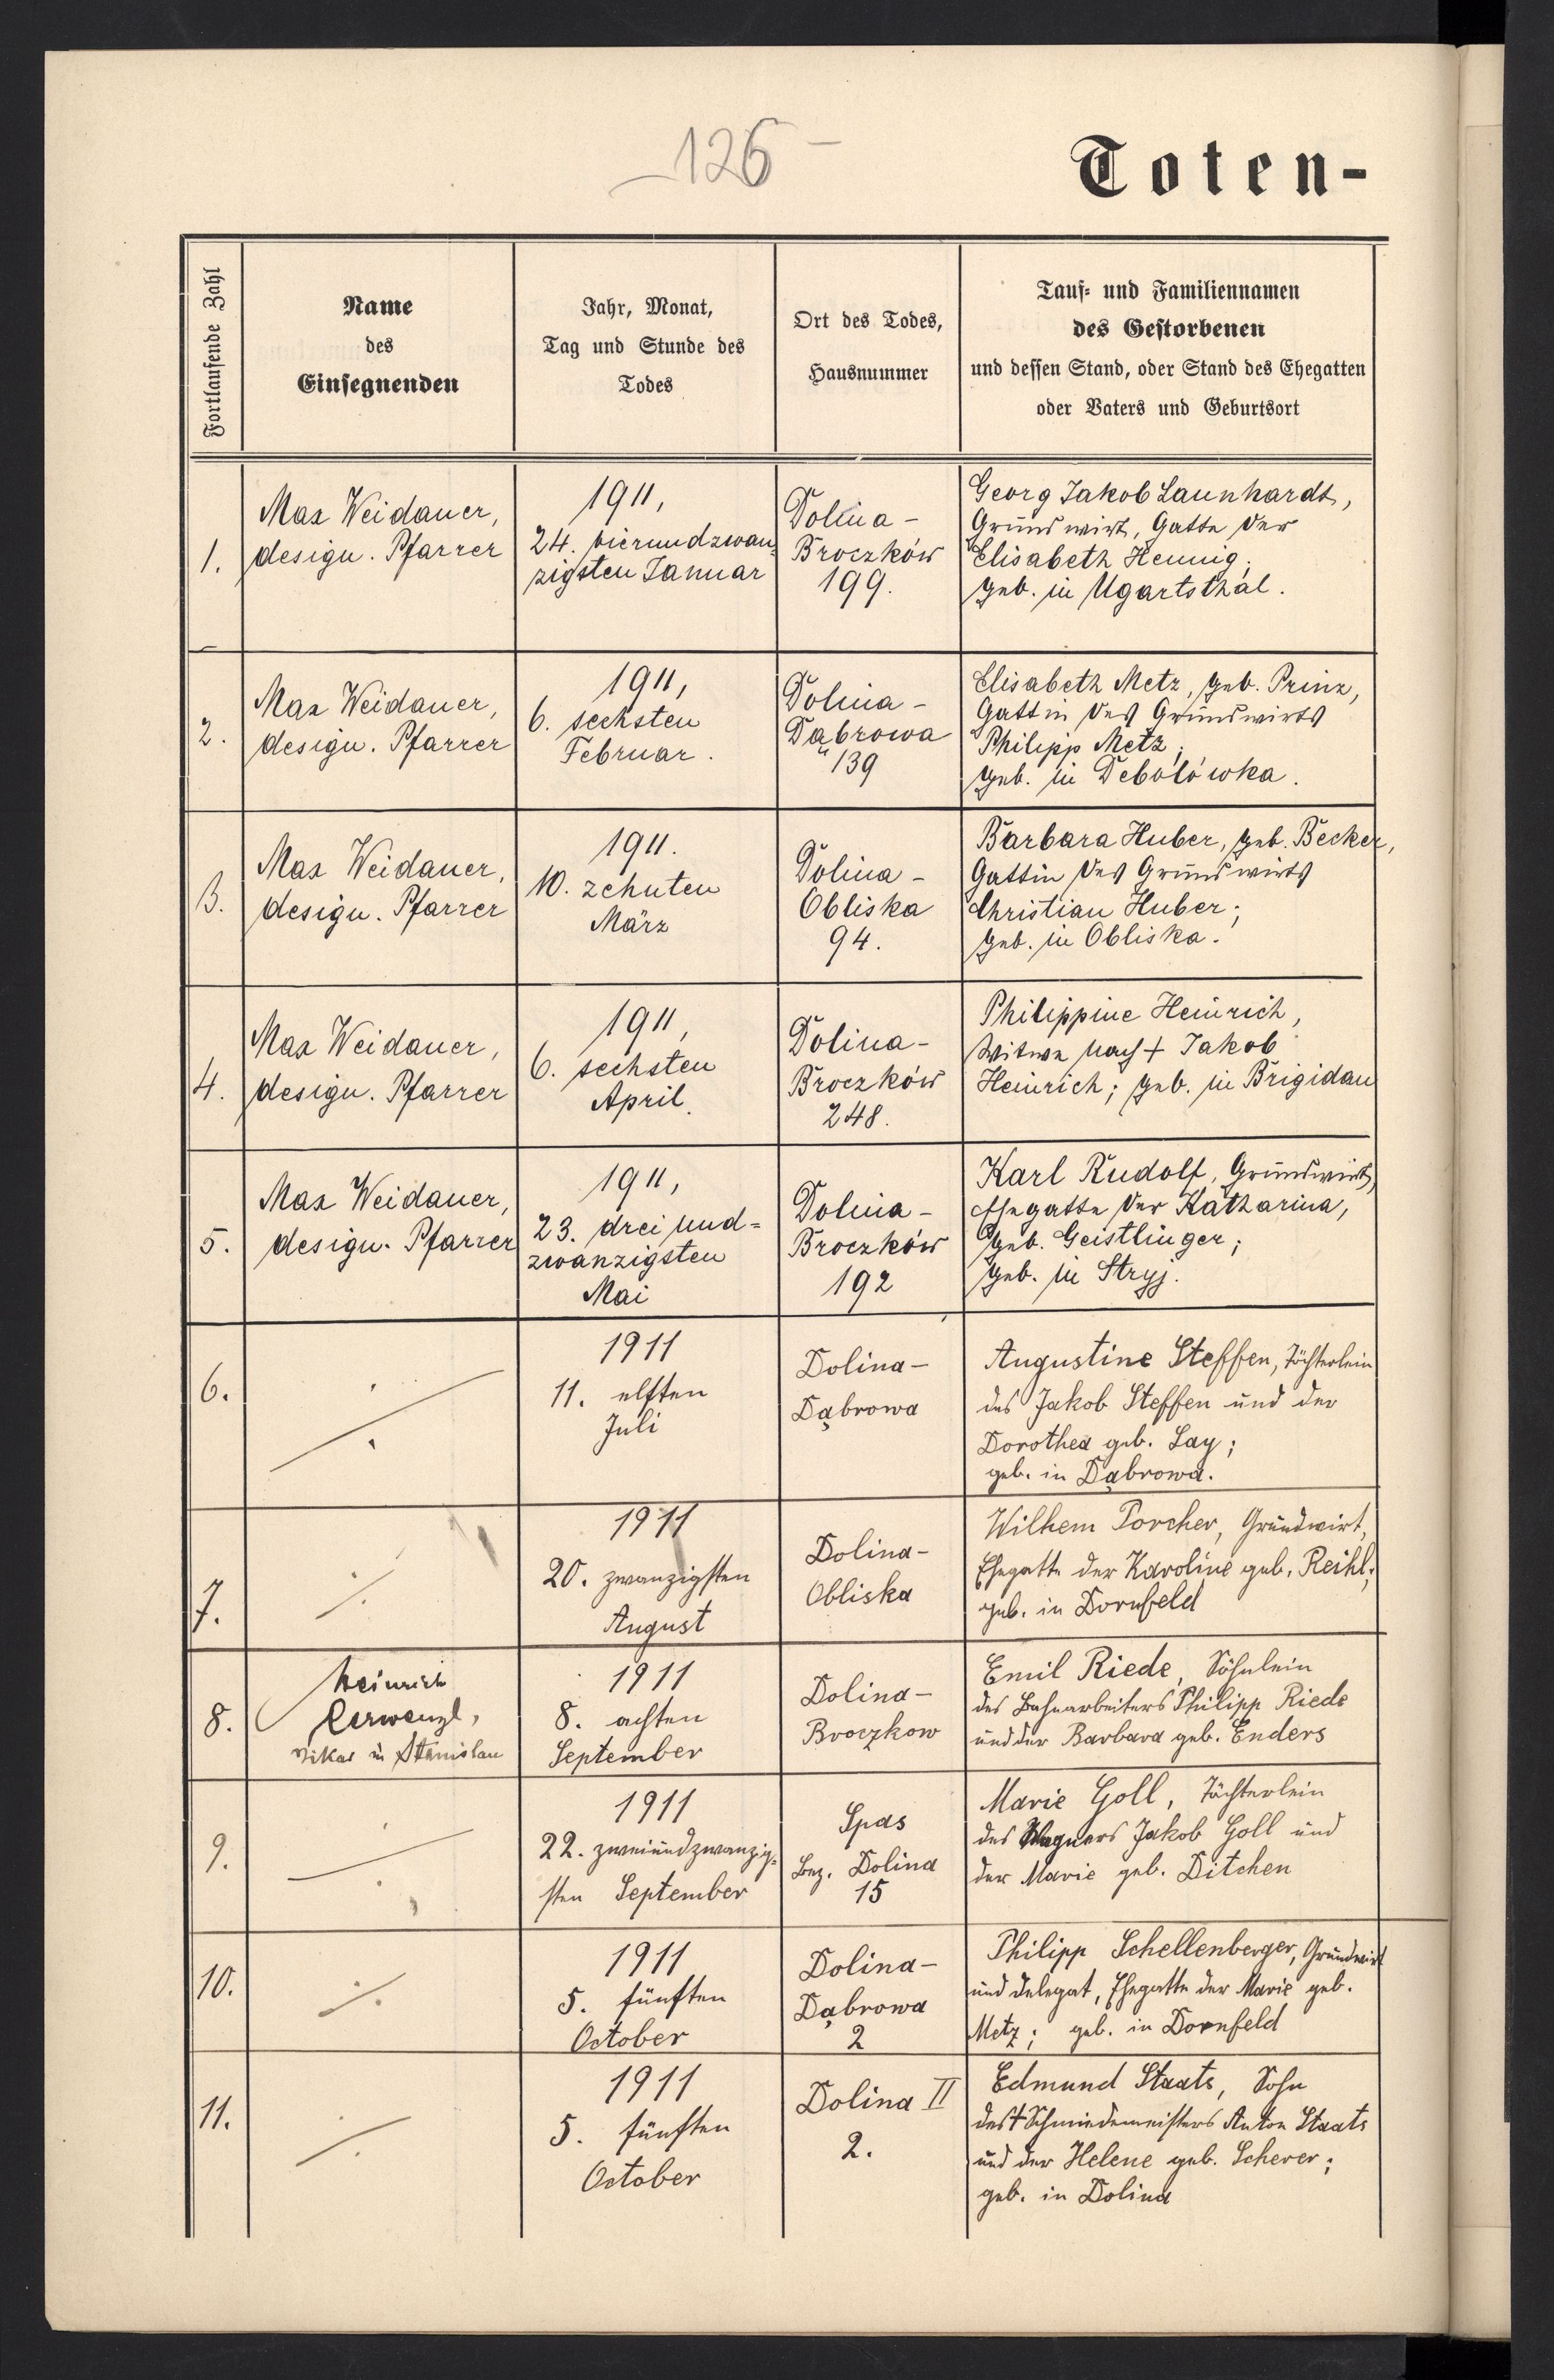 - 126 -
Toten-
Fortlaufende Zahl
Name
des
Einsegnenden
Jahr, Monat,
Tag und Stunde des
Todes
Ort des Todes,
Hausnummer
Tauf- und Familiennamen
des Gestorbenen
und dessen Stand, oder Stand des Ehegatten
oder Vaters und Geburtsort
1.
Max Weidauer,
design. Pfarrer
1911,
24. vierundzwan-
zigsten Januar
Dolina-
Broczków
199.
Georg Jakob Launhardt,
Grundwirt, Gatte der
Elisabeth Hennig;
geb. in Ugartsthal.
2.
Max Weidauer,
design. Pfarrer
1911,
6. sechsten
Februar.
Dolina-
Dąbrowa
139
Elisabeth Metz, geb. Prinz,
Gattin des Grundwirts
Philipp Metz;
geb. in Debolówka.
3.
Max Weidauer,
design. Pfarrer
1911.
10. zehnten
März
Dolina-
Obliska
94.
Barbara Huber, geb. Becker,
Gattin des Grundwirts
Christian Huber;
geb. in Obliska.
4.
Max Weidauer,
design. Pfarrer
1911,
6. sechsten
April.
Dolina-
Broczków
248.
Philippine Heinrich,
Witwe nach + Jakob
Heinrich; geb. in Brigidau
5.
Max Weidauer,
design. Pfarrer
1911,
23. drei und=
zwanzigsten
Mai
Dolina-
Broczków
192
Karl Rudolf, Grundwirt,
Ehegatte der Katharina,
geb. Geistlinger;
geb. in Stryj.
6.
·/.
1911
11. elften
Juli
Dolina-
Dąbrowa
Augustine Steffen, Töchterlein
des Jakob Steffen und der
Dorothea geb. Lay;
geb. in Dąbrowa.
7.
·/.
1911
20. zwanzigsten
August
Dolina-
Obliska
Wilhem Porcher, Grundwirt,
Ehegatte der Karoline geb. Reihl;
geb. in Dornfeld
8.
Heinrich
Lerwenzl,
Vikar in Stanislau
1911
8. achten
September
Dolina-
Broczkow
Emil Riede, Söhnlein
des Bahnarbeiters Philipp Riede
und der Barbara geb. Enders
9.
·/.
1911
22. zweiundzwanzig-
sten September
Spas
Bez. Dolina
15
Marie Goll, Töchterlein
des Wagners Jakob Goll und
der Marie geb. Ditchen
10.
·/.
1911
5. fünften
October
Dolina-
Dąbrowa
2
Philipp Schellenberger, Grundwirt
und Delegat, Ehegatte der Marie geb.
Metz; geb. in Dornfeld
11.
·/.
1911
5. fünften
October
Dolina II
2.
Edmund Staats, Sohn
des + Schmiedemeisters Anton Staats
und der Helene geb. Scherer;
geb. in Dolina